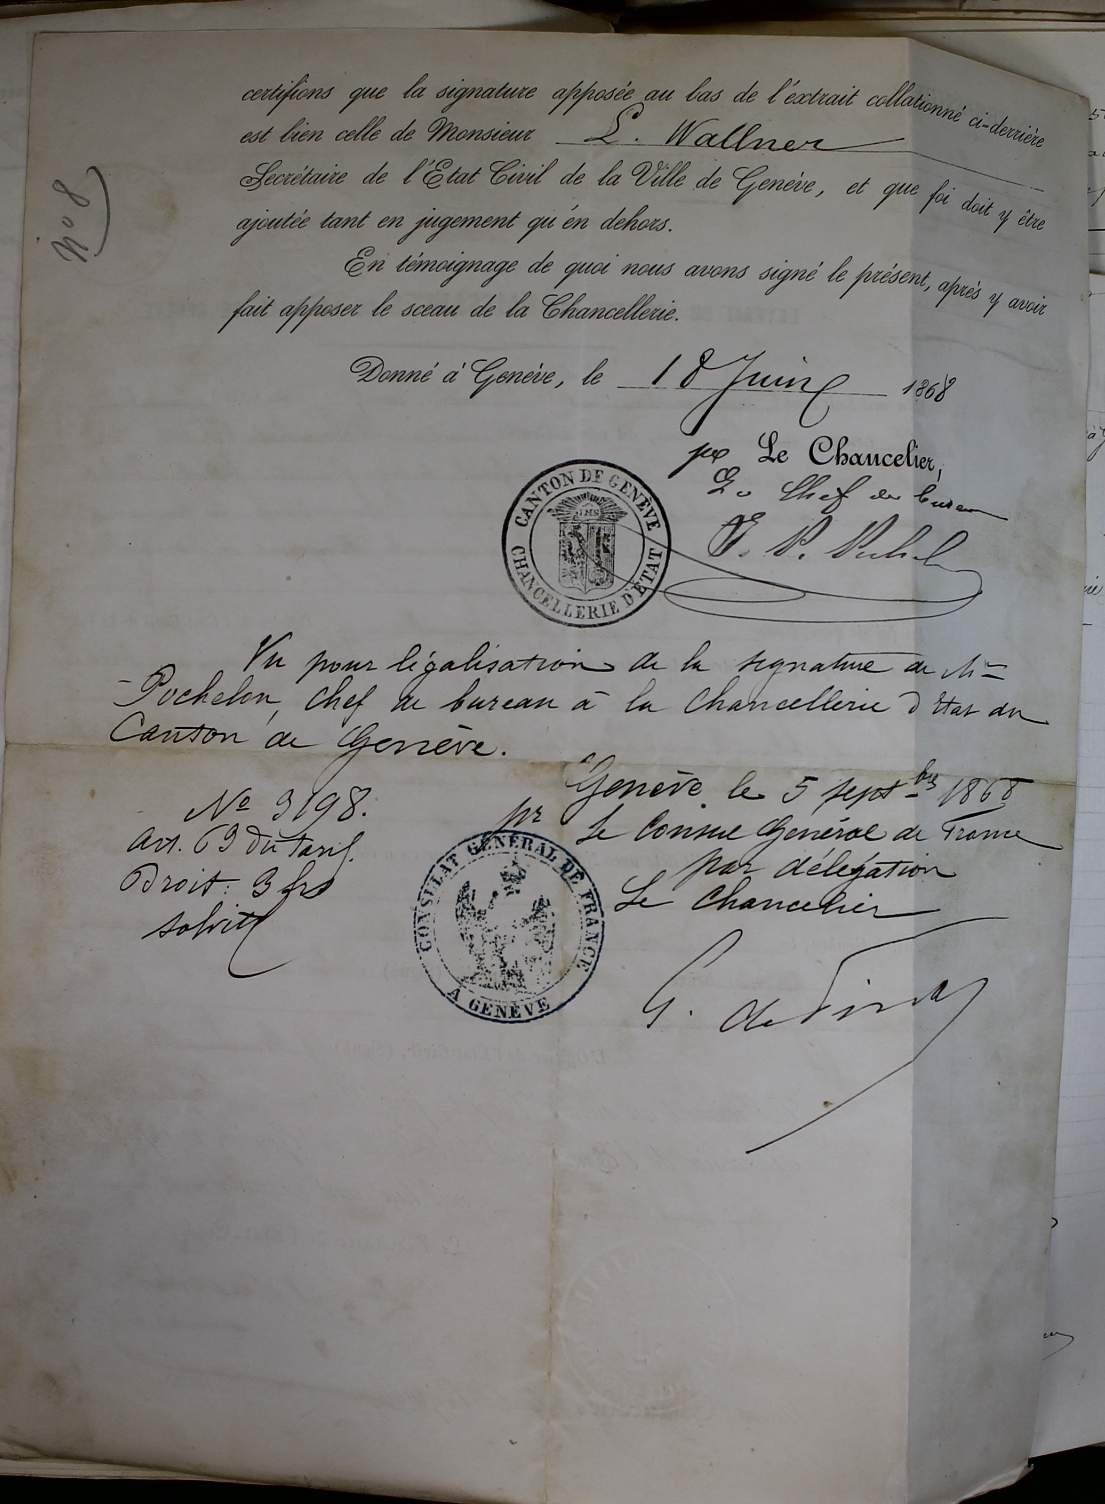 certifions que la signature apposée au bas de l'extrait collationné ci-derrière
est bien celle de Monsieur L. Wallner
Secrétaire de l'Etat Civil de la Ville de Genève, et que foi doit y être
ajoutée tant en jugement qu'en dehors.
En témoignage de quoi nous avons signé le présent, après y avoir
fait apposer le sceau de la Chancellerie.
No 8
Donné à Genève, le 18 Juin 1868
Le Chancelier,
Le Chef de bureau
CANTON DE GENÈVE
CHANCELLERIE D'ÉTAT
Vu pour légalisation de la signature de Mr
Pochelon, chef de bureau à la Chancellerie d'Etat du
Canton de Genève.
Genève, le 5 septbre 1868
No 3198.
pr Le Consul Général de France
Art. 69 du Tarif.
par délégation
Droit: 3 frs
Le Chancelier
solvit
CONSULAT GÉNÉRAL DE FRANCE
À GENÈVE
G. de